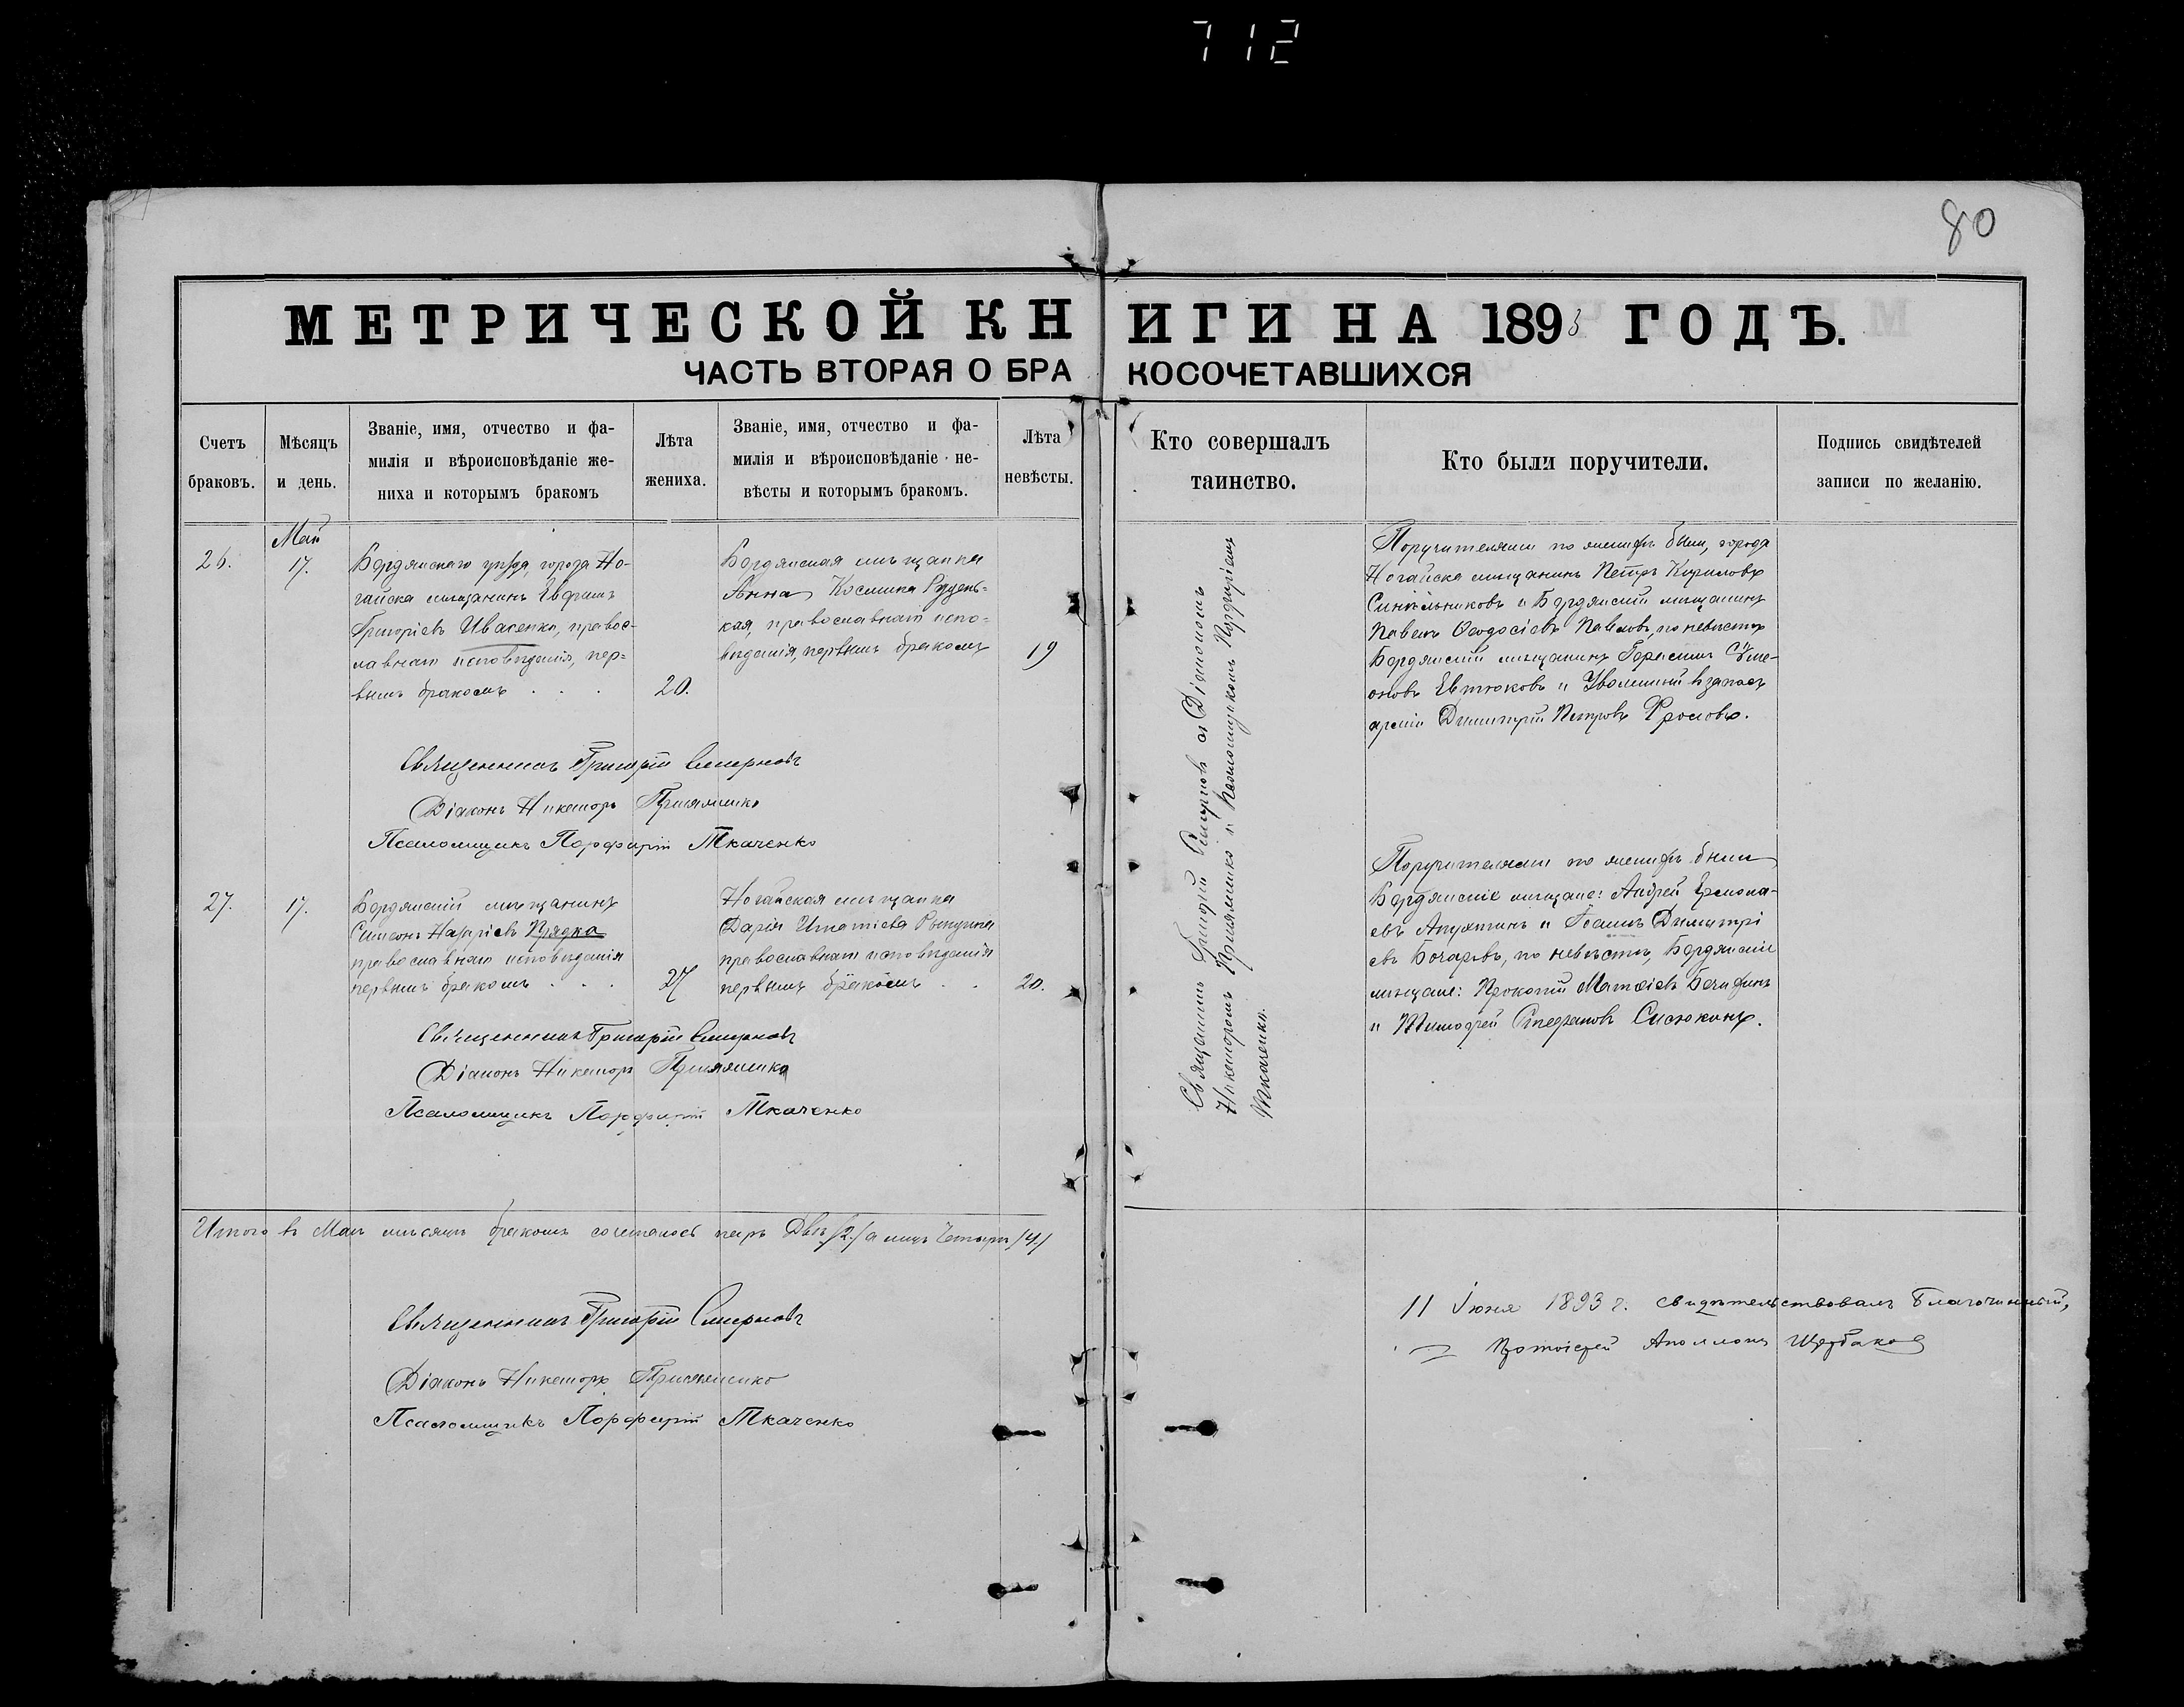 712
80
МЕТРИЧЕСКОЙ КНИГИ НА 1893 ГОДЪ.
ЧАСТЬ ВТОРАЯ О БРАКОСОЧЕТАВШИХСЯ
Счетъ
браковъ.
Мѣсяцъ
и день.
Званіе, имя, отчество и фа-
милія и вѣроисповѣданіе же-
ниха и которымъ бракомъ
Лѣта
жениха.
Званіе, имя, отчество и фа-
милія и вѣроисповѣданіе не-
вѣсты и которымъ бракомъ.
Лѣта
невѣсты.
Кто совершалъ
таинство.
Кто были поручители.
Подпись свидѣтелей
записи по желанію.
26.
Май
17.
Бердянскаго уѣзда, города Но-
гайска мѣщанинъ Евфимъ
Григоріевъ Ивасенко, правос-
лавнаго исповѣданія, пер-
вымъ бракомъ . . .
20.
Бердянская мѣщанка
Анна Космина Рудень-
кая, православнаго испо-
вѣданія, первымъ бракомъ
19
Священникъ Григорій Смирновъ съ Діакономъ
Никаноромъ и Псаломщикомъ Порфиріемъ
Ткаченко.
Поручителями по женихѣ были, города
Ногайска мѣщанинъ Петръ Кириловъ
Синѣльниковъ и Бердянскій мѣщанинъ
Павелъ Ѳеодосіевъ Павловъ, по невѣстѣ
Бердянскій мѣщанинъ Герасимъ Сѵме-
оновъ Евтюховъ и Уволенный въ запасъ
арміи Димитрій Петровъ Фроловъ.
Священникъ Григорій Смирновъ
Діаконъ Никаноръ
Псаломщикъ Порфирій Ткаченко
27.
17.
Бердянскій мѣщанинъ
Симеонъ Назаріевъ Прядка
православнаго исповѣданія
первымъ бракомъ . . .
27
Ногайская мѣщанка
Дарія Игнатіева
православнаго исповѣданія
первымъ бракомъ . .
20.
Поручителями по женихѣ были
Бердянскіе мѣщане: Андрей Ермола-
евъ Апухтинъ и Іоаннъ Димитрі
евъ Бочаровъ, по невѣстѣ, Бердянскіе
мѣщане: Прокопій Матѳіевъ
и Тимофей Стефановъ Сисюкинъ.
Священникъ Григорій Смирновъ
Діаконъ Никаноръ
Псаломщикъ Порфирій Ткаченко
Итого въ Маѣ мѣсяцѣ бракомъ сочеталось паръ Двѣ /2./ а лицъ Четыре /4./
Священникъ Григорій Смирновъ
Діаконъ Никаноръ
Псаломщикъ Порфирій Ткаченко
11 Іюня 1893 г. свидѣтельствовалъ Благочинный,
Протоіерей Аполлонъ Щербаковъ